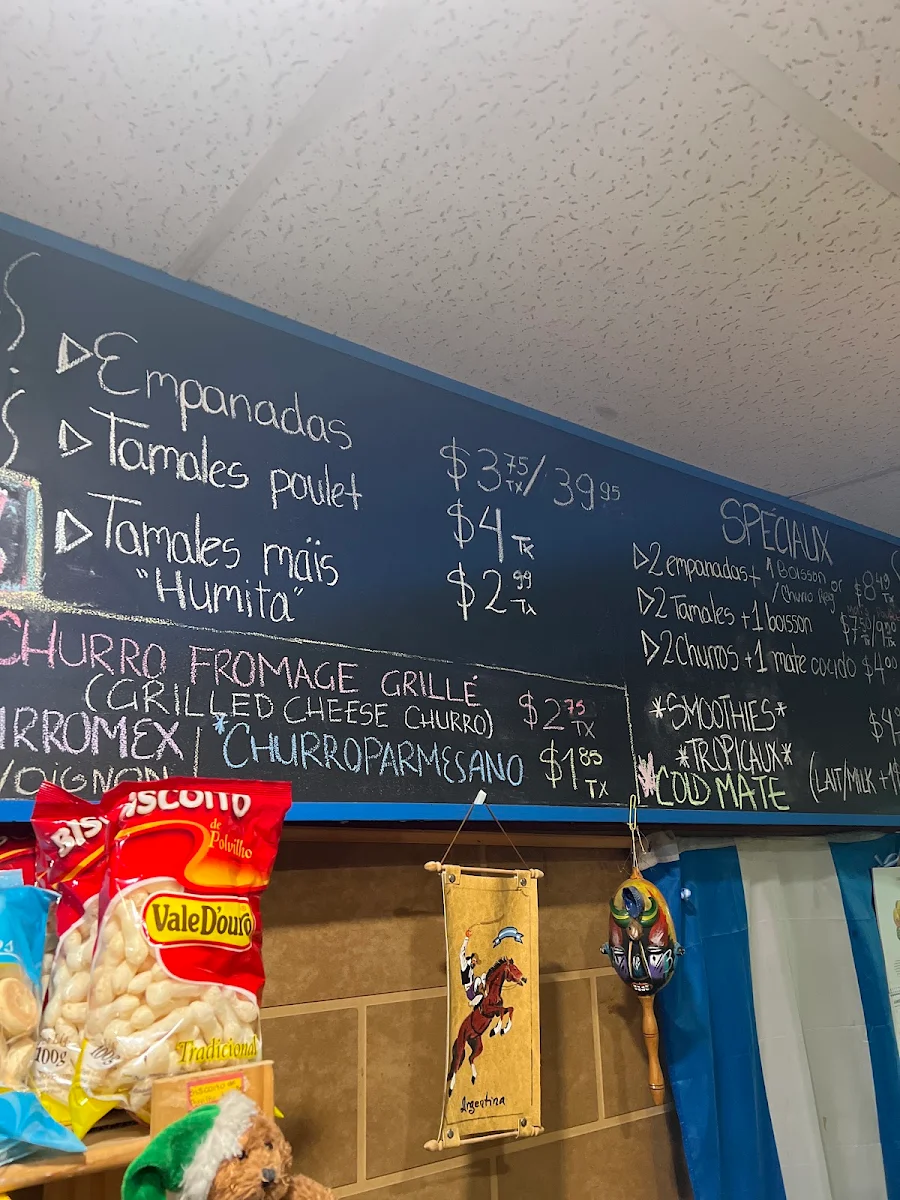 ▷Empanadas $3.75 TX / 39.95
▷Tamales poulet $4 TX
▷Tamales mäis $2.99 TX
"Humita"
CHURRO FROMAGE GRILLÉ
(GRILLED CHEESE CHURRO) $2.75 TX
*CHURROPARMESANO $1.85 TX
/OIGNON
SPÉCIAUX
▷2 empanadas + 1 Boisson or
/Churro Reg $8.49 TX
▷2 Tamales + 1 boisson
▷2 Churros + 1 mate cocido $4.00
*SMOOTHIES*
*TROPICAUX*
COLD MATE (LAIT/MILK +1
BISCOITO
de
Polvilho
ValeD'ouro
100g
Tradicional
Argentina